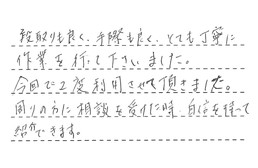 段取りも良く、手際も良く、とても丁寧に
作業を行って下さいました。
今回で2度利用させて頂きました。
周りの方に相談を受けた時、自信を持って
紹介できます。